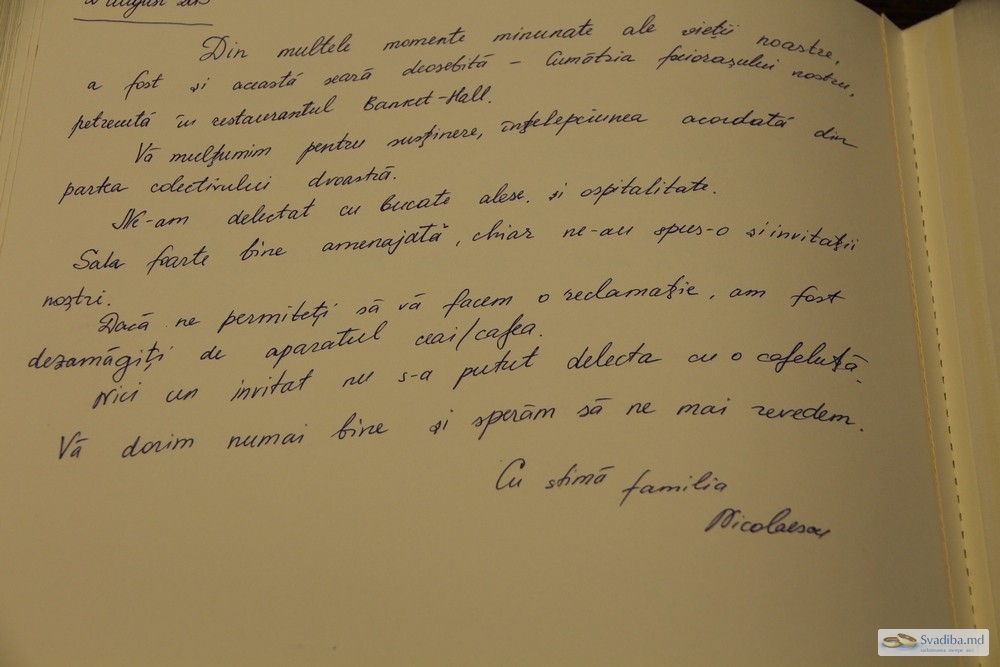 august
Din multele momente minunate ale vieții noastre,
a fost și această seară deosebită – Cumătria feciorașului nostru,
petrecută în restaurantul Banket-Hall.
Vă mulțumim pentru susținere, înțelepciunea acordată din
partea colectivului dvoastră.
Ne-am delectat cu bucate alese, și ospitalitate.
Sala foarte bine amenajată, chiar ne-au spus-o și invitații
noștri.
Dacă ne permiteți să vă facem o reclamație, am fost
dezamăgiți de aparatul ceai/cafea.
Nici un invitat nu s-a putut delecta cu o cafeluță.
Vă dorim numai bine și sperăm să ne mai revedem.
Cu stimă familia
Nicolaescu
Svadiba.md